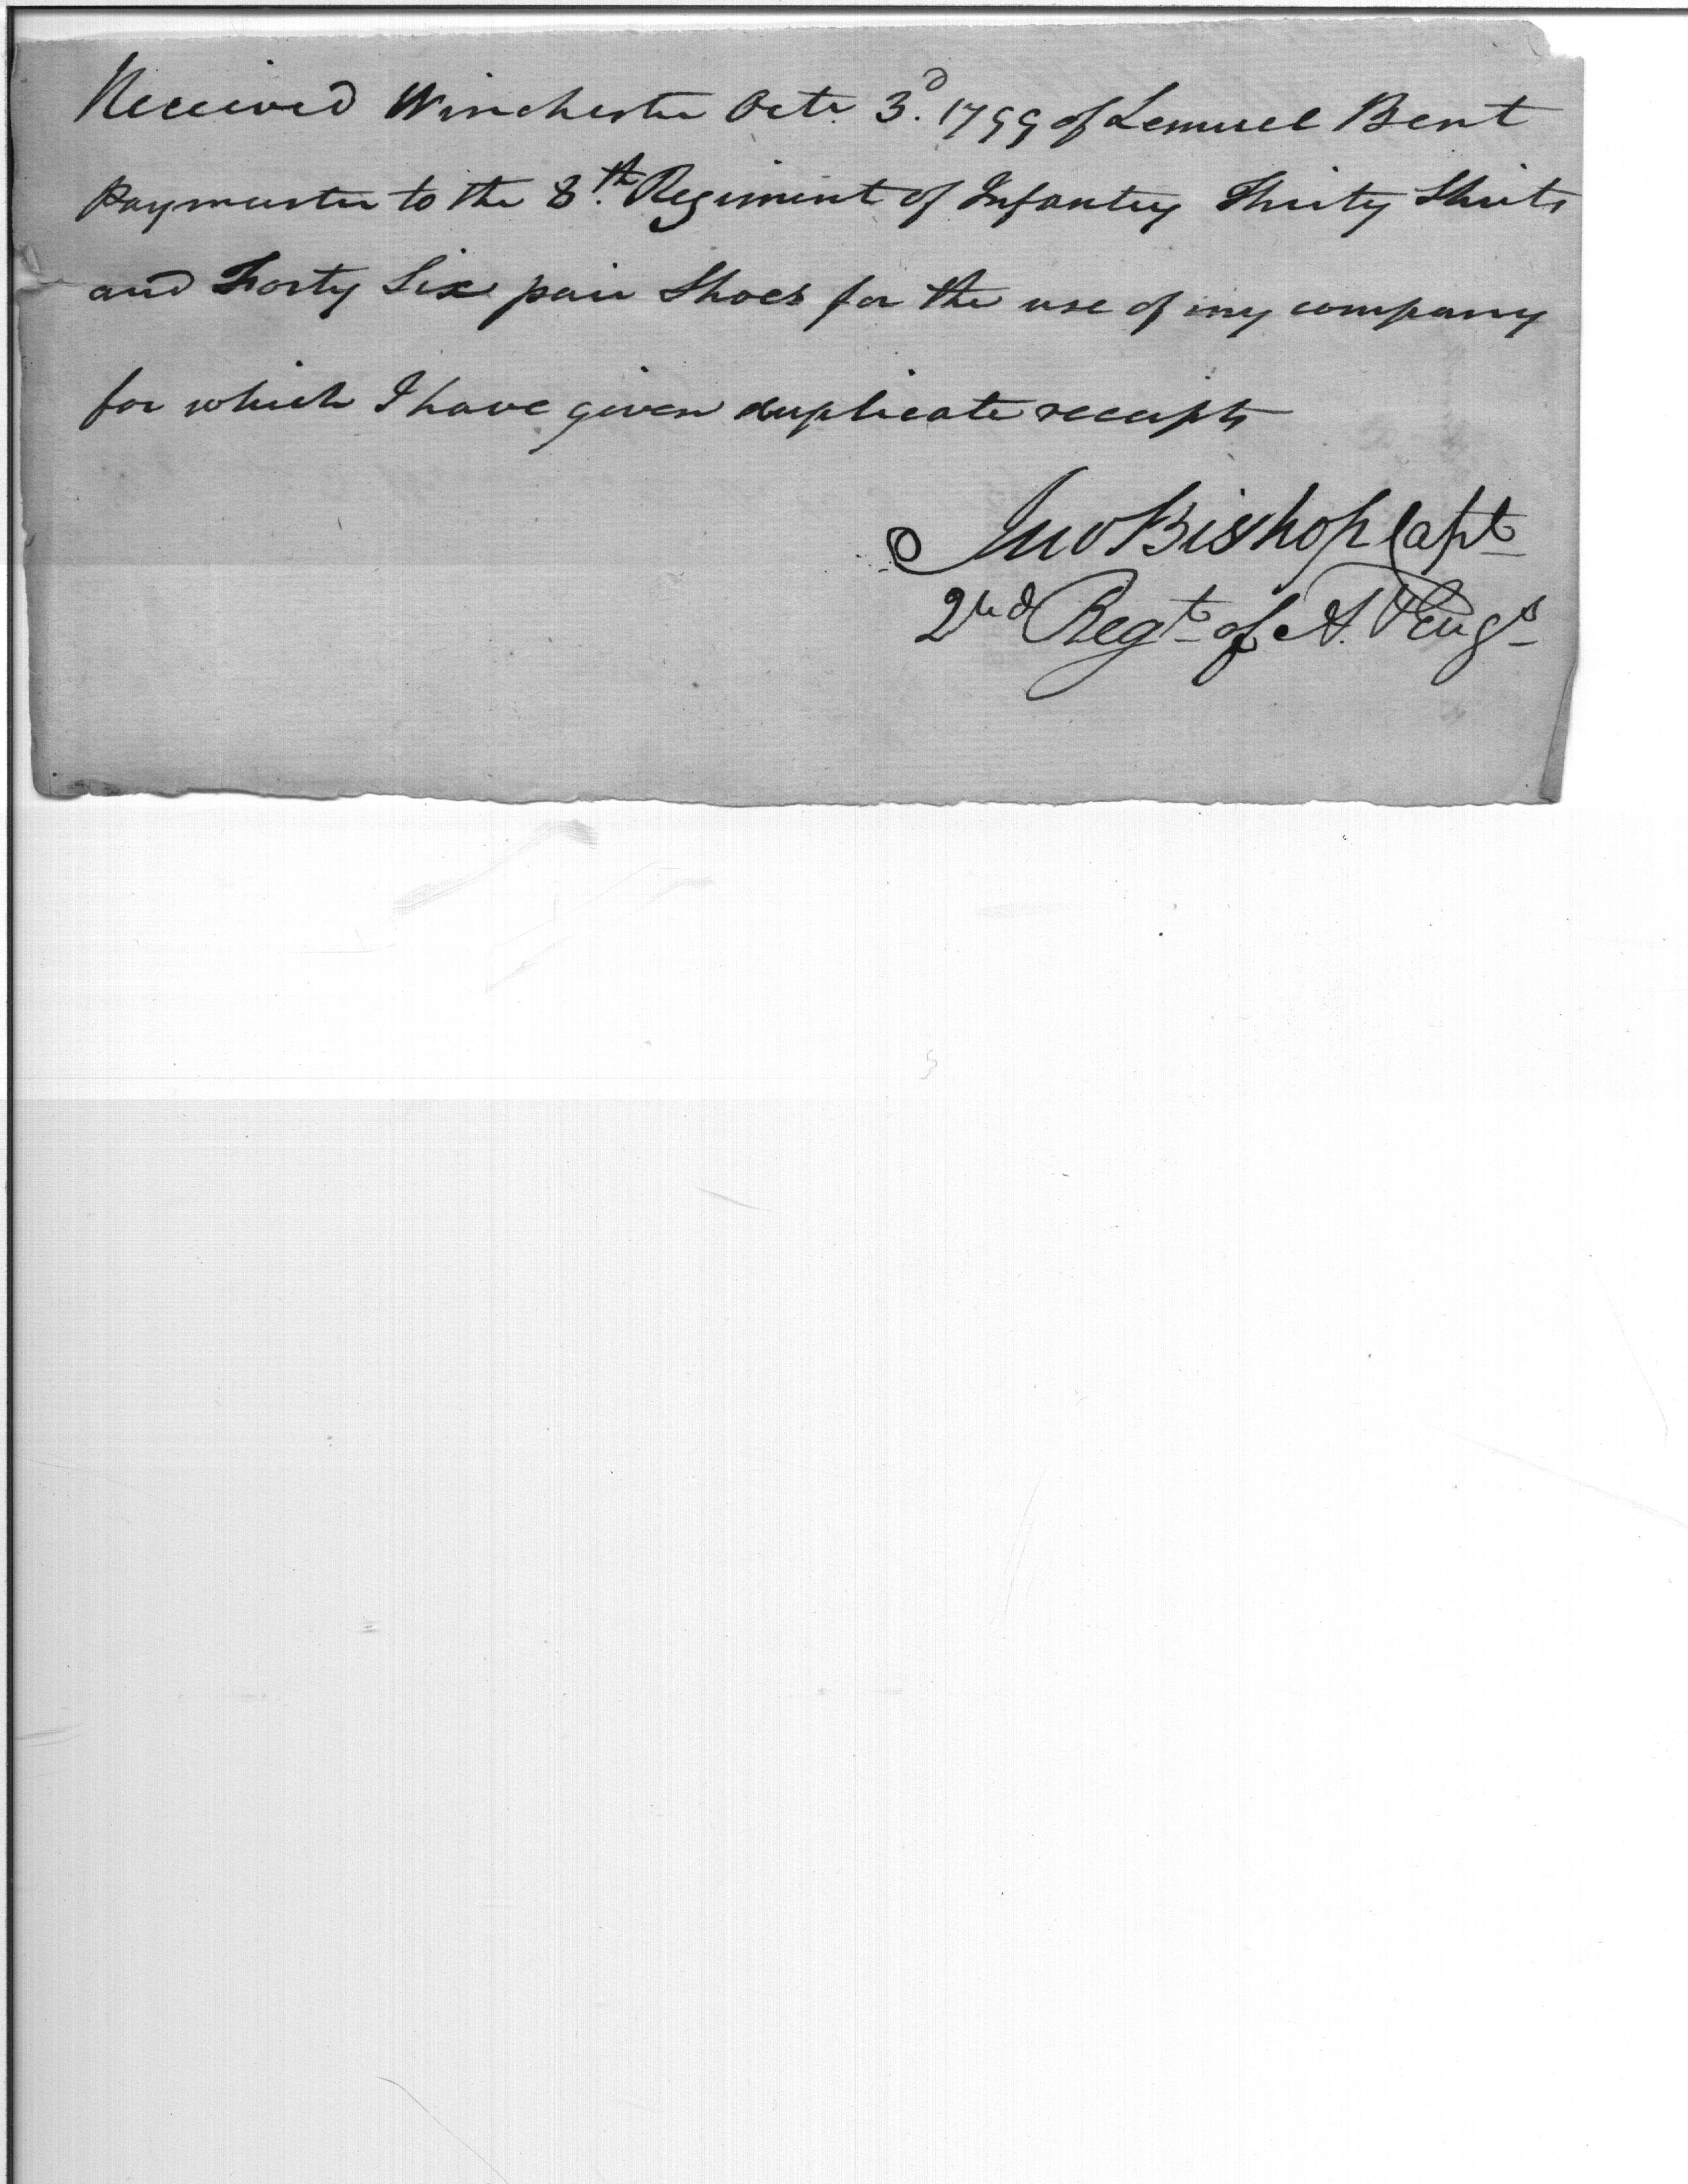 Received Winchester Octr. 3d. 1799 of Lemuel Bent
Paymaster to the 8th. Regiment of Infantry Thirty Shirts
and Forty Six pair Shoes for the use of my company
for which I have given duplicate receipts
Jno Bishop Capt
2nd Regt of A. & Engs